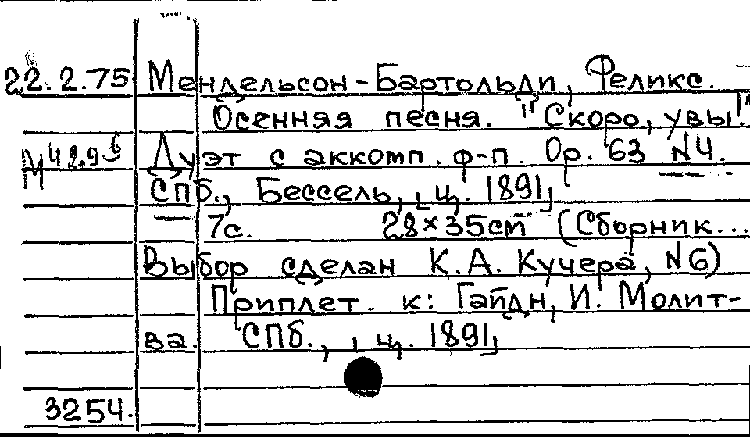 22.2.75 Мендельсон-Бартольди, Феликс.
Осенняя песня. "Скоро, увы!"
М 42.9 Дуэт с аккомп. ф-п. Op. 63 N4.
СПб., Бессель, ц. 1891,
7с. 28×35cm (Сборник...
Выбор сделан К.А. Кучера, N6)
Приплет. к: Гайдн, И. Молит-
ва. СПб., ц. 1891,
3254.